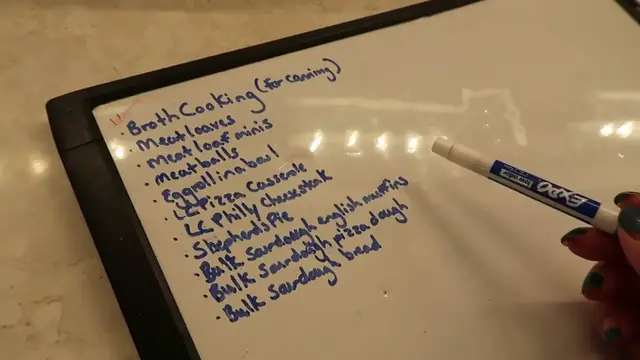 · Broth Cooking (for canning)
· Meatloaves
· meatloaf minis
· meatballs
· Eggroll in a bowl
· LC Pizza Casserole
· LC Philly cheesesteak
· Shepherds Pie
· Bulk sourdough english muffins
· Bulk sourdough pizza dough
· Bulk sourdough bread
EXPO
low odor